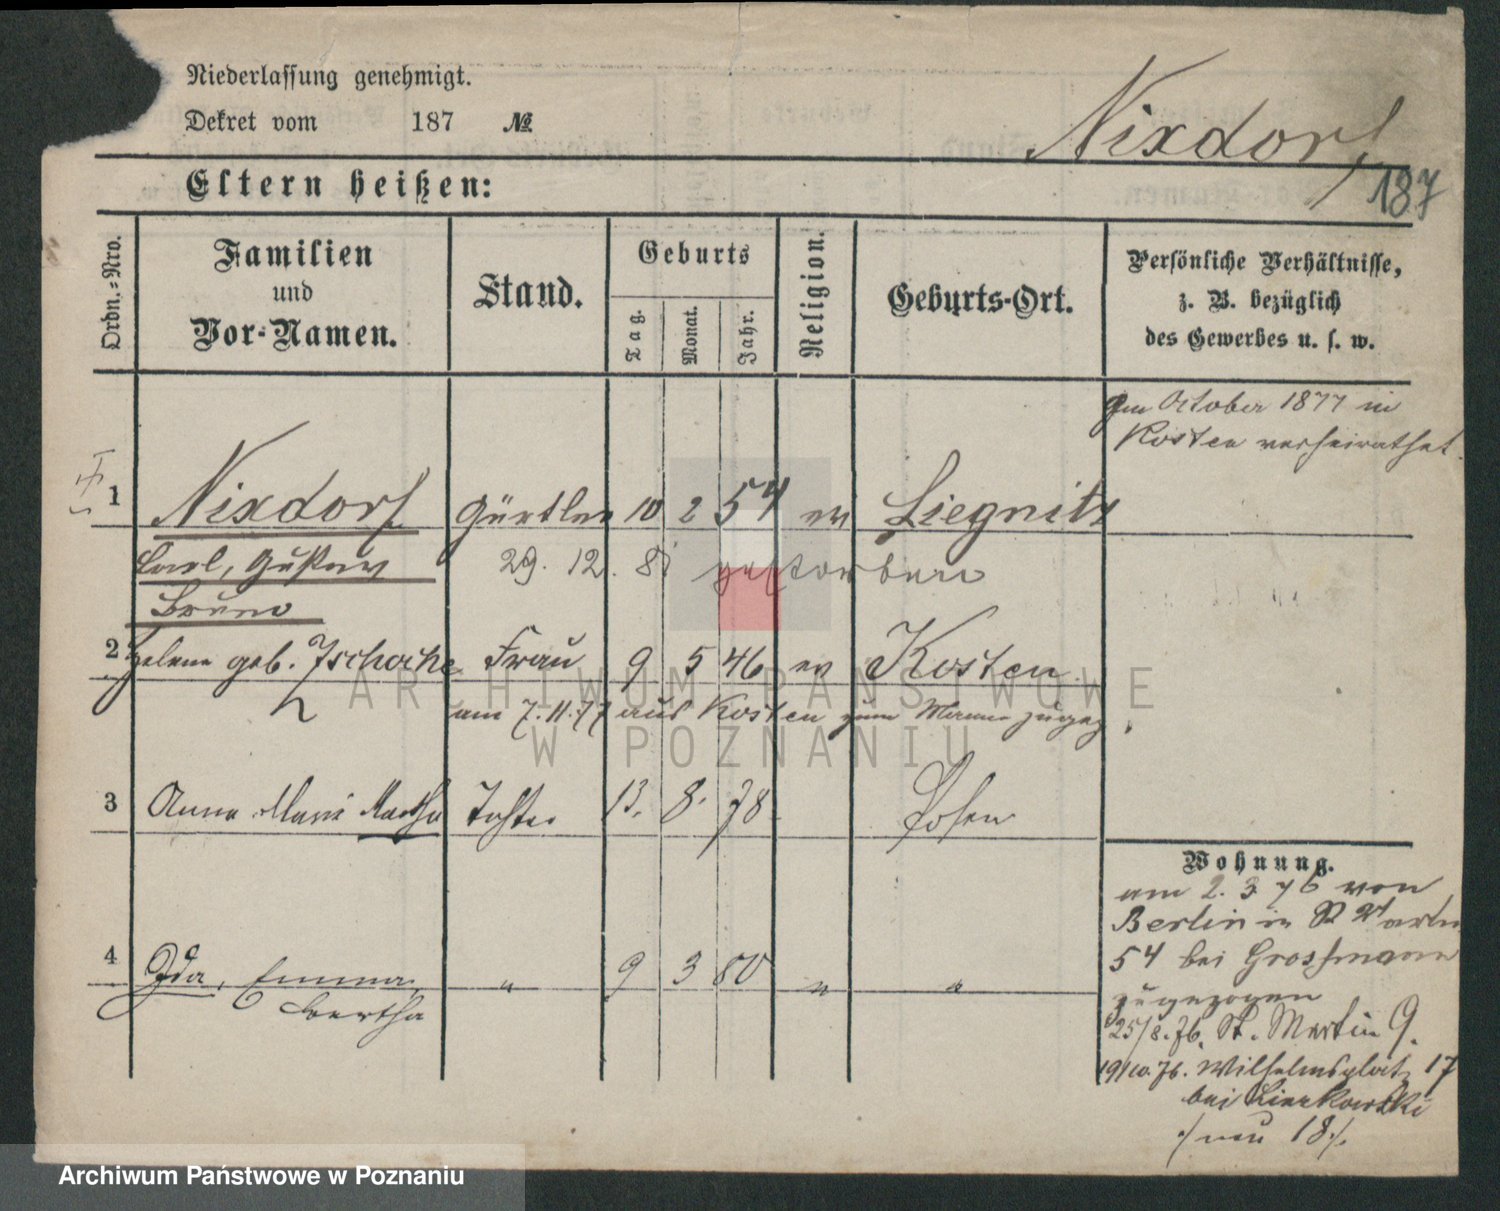 Niederlassung genehmigt.
Dekret vom 187 №
Nixdorf
187
Eltern heißen:
Ordn.=Nro.
Familien und Vor=Namen.
Stand.
Geburts
Tag.
Monat.
Jahr.
Religion.
Geburts=Ort.
Persönliche Verhältnisse,
z. B. bezüglich
des Gewerbes u. s. w.
October 1877 in
Kosten verheirathet.
1 Nixdorf Gürtler 10 2 54 ev Liegnitz
Carl, Gustav
Bruno
29. 12. 8 gestorben
2 Helene geb. Zschocke Frau 9 5 46 ev Kosten
am 7.11.77 aus Kosten zum Manne zugez.
3 Anna Marie Martha Tochter 13. 8. 78 Posen
4 Ida, Emma, " 9 3 80 " "
Bertha
Wohnung.
am 2. 3 76 von
Berlin in St Martin
54 bei Grossmann
zugezogen
25/8.76. St. Martin 9.
19/10.76. Wilhelmsplatz 17
bei
./ neu 18 ./.
ARCHIWUM PAŃSTWOWE
W POZNANIU
Archiwum Państwowe w Poznaniu